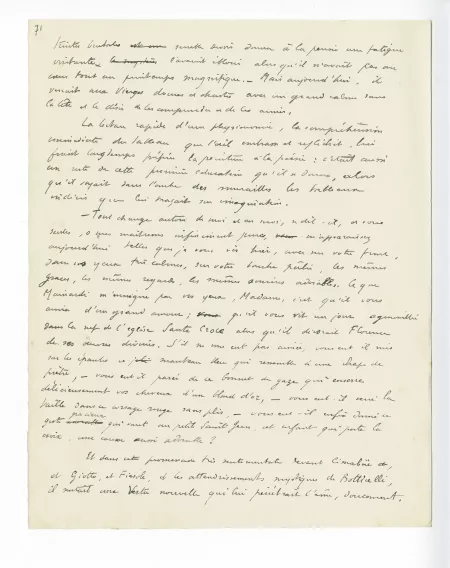 71
à la pensée une fatigue
alors qu'il n'avait pas au
tout un printemps magnifique. — Mais aujourd'hui, il
venait aux Vierges douces et chastes avec un grand calme dans
la tête et le désir de les comprendre et de les aimer.
La lecture rapide d'une physionomie, la compréhension
immédiate du tableau que l'œil embrasse et réfléchit, lui
longtemps préférer la peinture à la poésie : c'était aussi
un de cette première éducation qu'il se donna, alors
qu'il voyait dans l'ombre des murailles les tableaux
que lui traçait son imagination.
— Tout change autour de moi et en moi, se dit-il, et vous
seules, ô que maîtresses infiniment pures, m'apparaissez
aujourd'hui telles que je vous vis hier, avec sur votre front,
dans vos yeux très calmes, sur votre bouche petite, les mêmes
grâces, les mêmes regards, les mêmes sourires adorables. Ce que
Mainardi m'enseigne par vos yeux, Madame, c'est qu'il vous
aima d'un grand amour ; qu'il vous vit un jour agenouillée
dans la nef de l'église Santa Croce alors qu'il Florence
de ses œuvres divines. S'il ne vous eut pas aimée, vous eut-il mis
sur les épaules ce manteau bleu qui ressemble à une chape de
prêtre, — vous eut-il parée de ce bonnet de gaze qui enserre
délicieusement vos cheveux d'un blond d'or, — vous eut-il serré la
taille dans ce corsage rouge sans plis, — vous eut-il enfin donné ce
geste gracieux qui veut au petit Saint Jean, cet enfant qui porte la
croix, une caresse aussi adroite ?
Et dans cette promenade très sentimentale devant Cimabue
et Giotto, et Fiesole, et les attendrissements mystiques de Botticelli,
il sentait une Vertu nouvelle qui lui pénétrait l'âme, doucement.